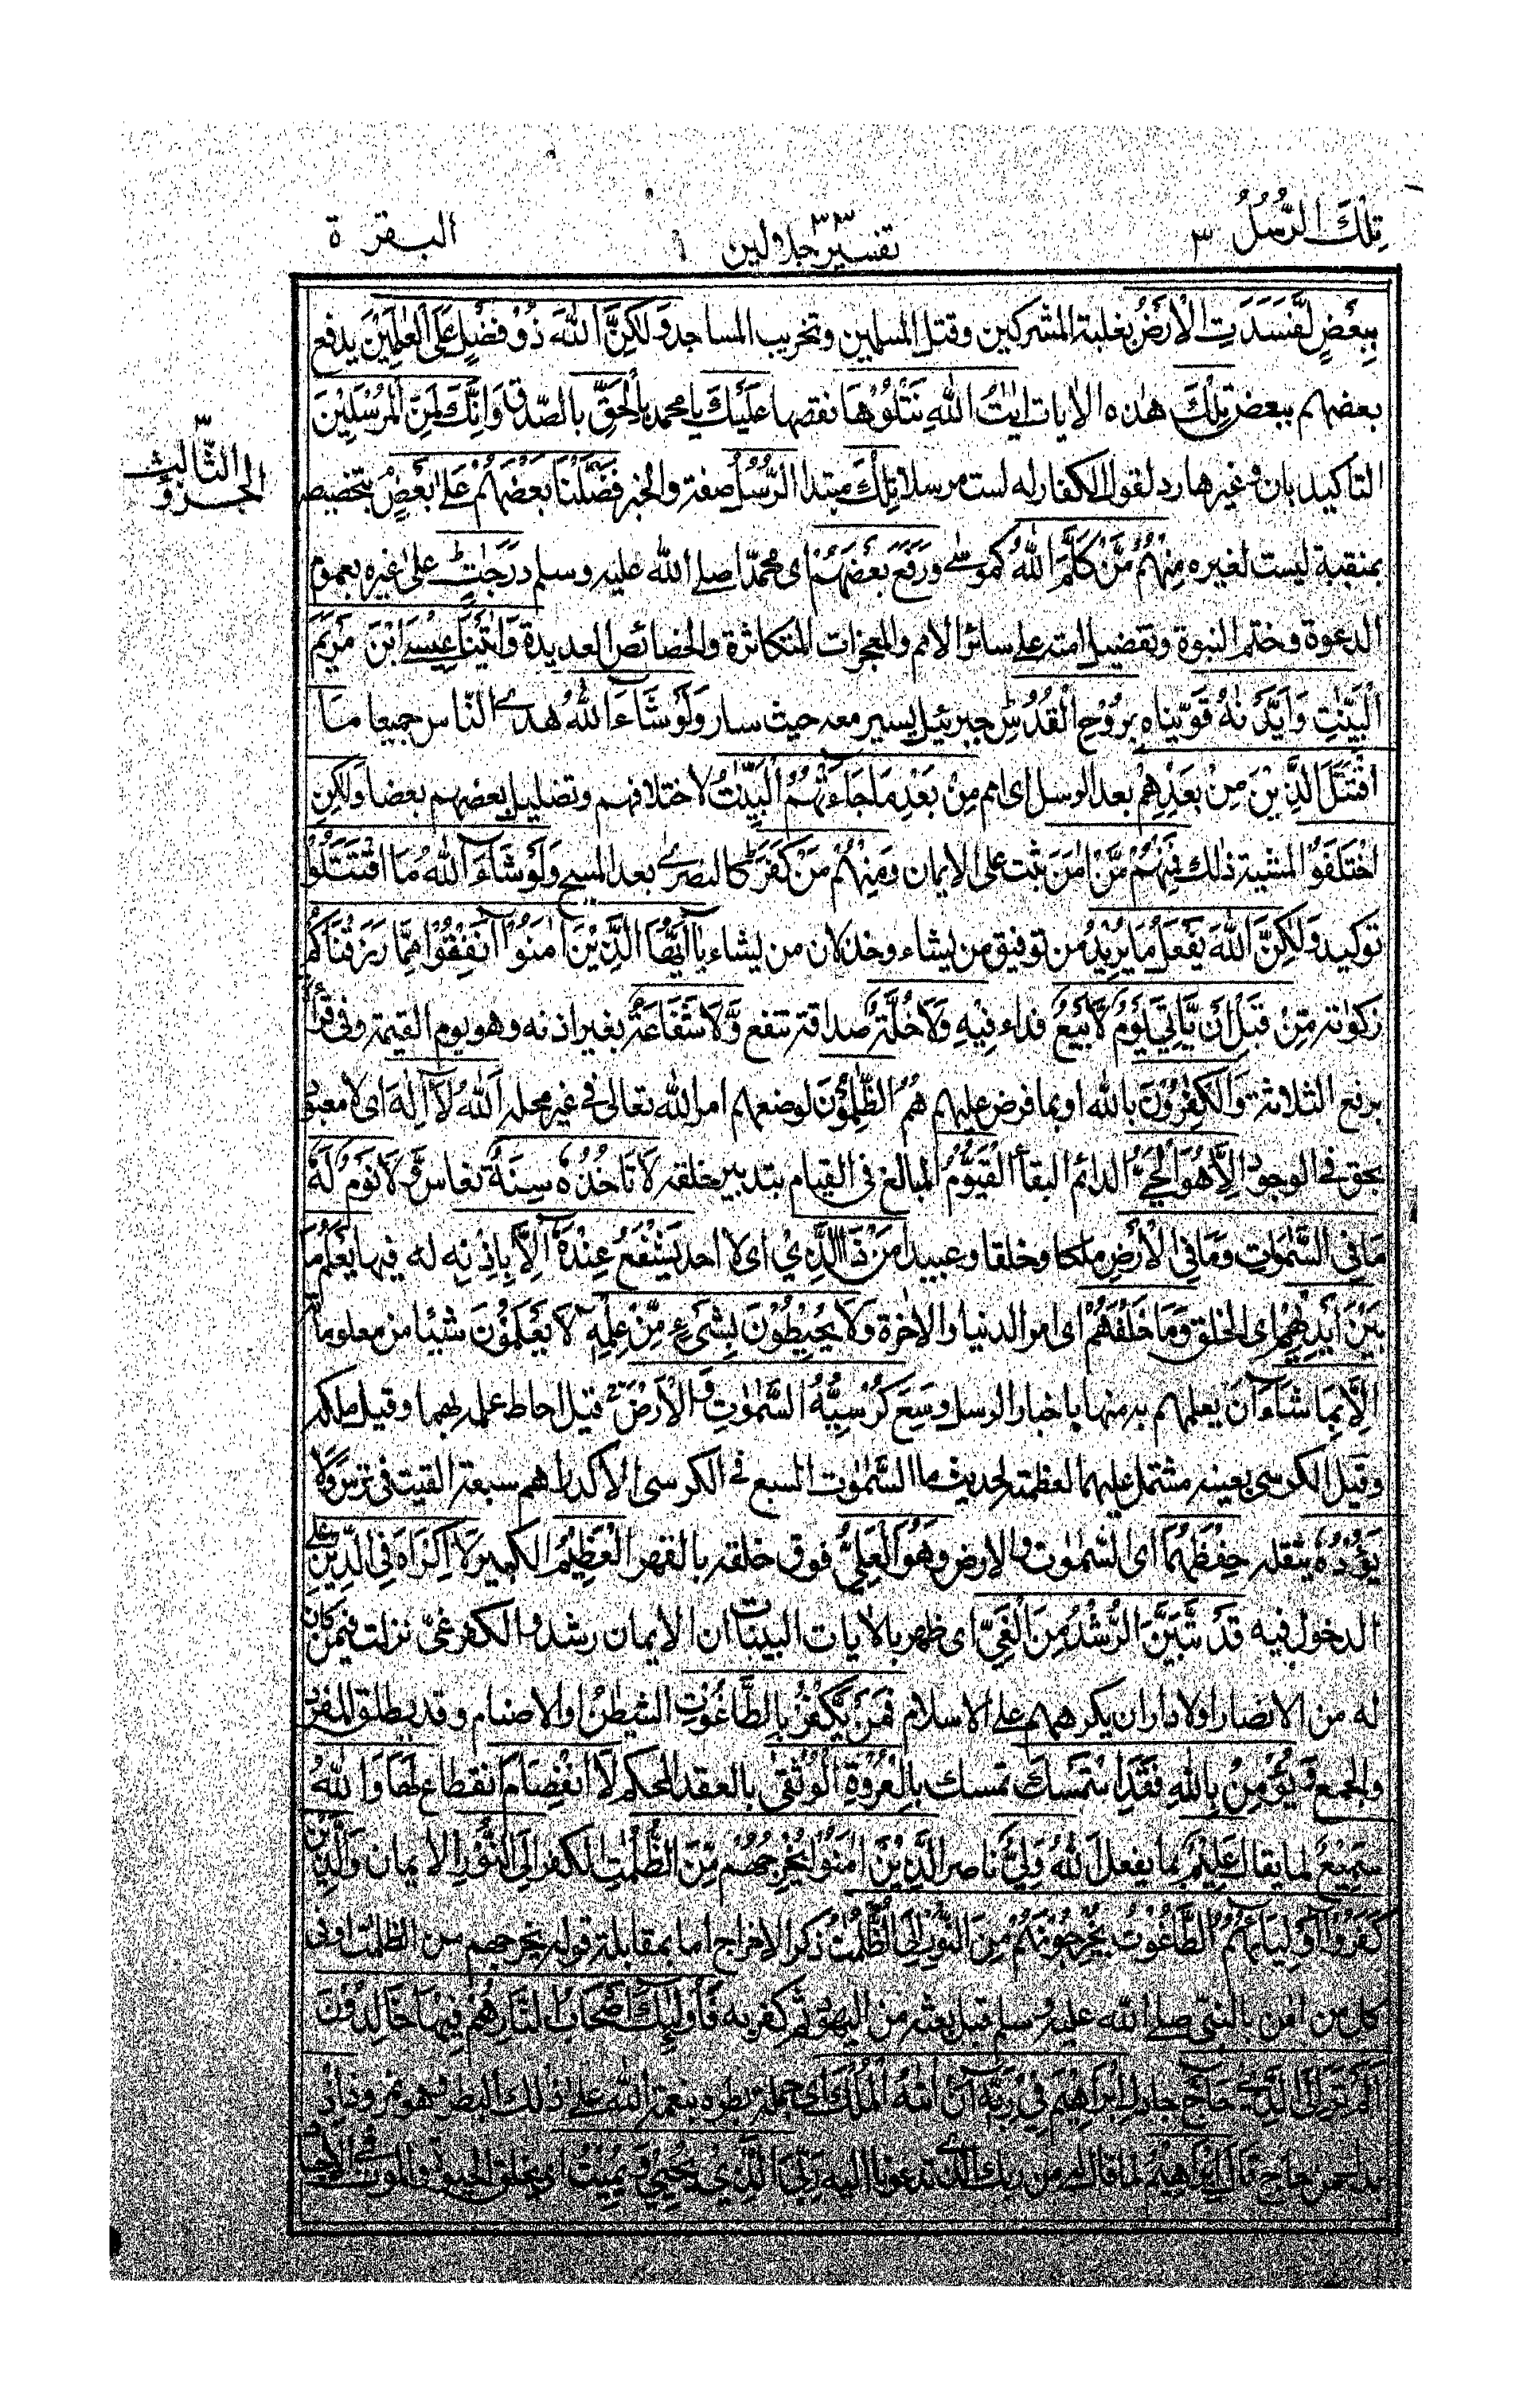 تِلْكَ الرُّسُلُ ٣
تفسير جلالين ٣٣
البقرة
بِبَعْضٍ لَّفَسَدَتِ الْاَرْضُ بغلبة المشركين وقتل المسلمين وتخريب المساجد وَلٰكِنَّ اللّٰهَ ذُوْ فَضْلٍ عَلَى الْعٰلَمِيْنَ يدفع
بعضهم ببعض تِلْكَ هذه الايات اٰيٰتُ اللّٰهِ نَتْلُوْهَا نقصها عَلَيْكَ يا محمد بِالْحَقِّ بالصدق وَاِنَّكَ لَمِنَ الْمُرْسَلِيْنَ
الجزؤ الثالث ٣
التاكيد بان وغيرها رد لقول الكفار له لست مرسلا تِلْكَ مبتدا الرُّسُلُ صفة والخبر فَضَّلْنَا بَعْضَهُمْ عَلٰى بَعْضٍ بتخصيصه
بمنقبة ليست لغيره مِنْهُمْ مَّنْ كَلَّمَ اللّٰهُ كموسى وَرَفَعَ بَعْضَهُمْ اى محمدا صلى الله عليه وسلم دَرَجٰتٍ على غيره بعموم
الدعوة وختم النبوة وتفضيل امته على سائر الامم والمعجزات المتكاثرة والخصائص العديدة وَاٰتَيْنَا عِيْسَى ابْنَ مَرْيَمَ
الْبَيِّنٰتِ وَاَيَّدْنٰهُ قويناه بِرُوْحِ الْقُدُسِ جبرئيل يسير معه حيث سار وَلَوْ شَآءَ اللّٰهُ هدى الناس جميعا مَا
اقْتَتَلَ الَّذِيْنَ مِنْ بَعْدِهِمْ بعد الرسل اى امم مِنْ بَعْدِ مَا جَآءَتْهُمُ الْبَيِّنٰتُ لاختلافهم وتضليل بعضهم بعضا وَلٰكِنِ
اخْتَلَفُوْا لمشية ذلك فَمِنْهُمْ مَّنْ اٰمَنَ ثبت على الايمان وَمِنْهُمْ مَّنْ كَفَرَ كالنصرى بعد المسيح وَلَوْ شَآءَ اللّٰهُ مَا اقْتَتَلُوْا
توكيد وَلٰكِنَّ اللّٰهَ يَفْعَلُ مَا يُرِيْدُ من توفيق من يشاء وخذلان من يشاء يٰٓاَيُّهَا الَّذِيْنَ اٰمَنُوْٓا اَنْفِقُوْا مِمَّا رَزَقْنَاكُمْ
زكوته مِّنْ قَبْلِ اَنْ يَّاْتِيَ يَوْمٌ لَّا بَيْعٌ فداء فِيْهِ وَلَا خُلَّةٌ صداقة تنفع وَّلَا شَفَاعَةٌ بغير اذنه وهو يوم القيمة وفى قراءة
برفع الثلاثة وَالْكٰفِرُوْنَ بالله او بما فرض عليهم هُمُ الظّٰلِمُوْنَ لوضعهم امر الله تعالى في غير محله اَللّٰهُ لَآ اِلٰهَ اى لا معبود
بحق فى الوجود اِلَّا هُوَ الْحَيُّ الدائم البقاء الْقَيُّوْمُ المبالغ فى القيام بتدبير خلقه لَا تَاْخُذُهٗ سِنَةٌ نعاس وَّلَا نَوْمٌ لَهٗ
مَا فِى السَّمٰوٰتِ وَمَا فِى الْاَرْضِ ملكا وخلقا وعبيدا مَنْ ذَا الَّذِيْ اى لا احد يَشْفَعُ عِنْدَهٗٓ اِلَّا بِاِذْنِهٖ له فيها يَعْلَمُ مَا
بَيْنَ اَيْدِيْهِمْ اى الخلق وَمَا خَلْفَهُمْ اى امر الدنيا والاخرة وَلَا يُحِيْطُوْنَ بِشَيْءٍ مِّنْ عِلْمِهٖٓ لا يعلمون شيئا من معلوماته
اِلَّا بِمَا شَآءَ ان يعلمهم به منها باخبار الرسل وَسِعَ كُرْسِيُّهُ السَّمٰوٰتِ وَالْاَرْضَ قيل احاط علمه بهما وقيل ملكه
وقيل الكرسى بعينه مشتمل عليهما لعظمته لحديث ما السموت السبع فى الكرسى الا كدراهم سبعة القيت فى ترس وَلَا
يَؤُوْدُهٗ يثقله حِفْظُهُمَا اى السموت والارض وَهُوَ الْعَلِيُّ فوق خلقه بالقهر الْعَظِيْمُ الكبير لَآ اِكْرَاهَ فِى الدِّيْنِ على
الدخول فيه قَدْ تَّبَيَّنَ الرُّشْدُ مِنَ الْغَيِّ اى ظهر بالايات البينات ان الايمان رشد والكفر غى نزلت فيمن كان
له من الانصار اولاد اراد ان يكرههم على الاسلام فَمَنْ يَّكْفُرْ بِالطَّاغُوْتِ الشيطن او الاصنام وقد يطلق المفرد
والجمع وَيُؤْمِنْ بِاللّٰهِ فَقَدِ اسْتَمْسَكَ تمسك بِالْعُرْوَةِ الْوُثْقٰى بالعقد المحكم لَا انْفِصَامَ انقطاع لَهَا وَاللّٰهُ
سَمِيْعٌ لما يقال عَلِيْمٌ بما يفعل اَللّٰهُ وَلِيُّ ناصر الَّذِيْنَ اٰمَنُوْا يُخْرِجُهُمْ مِّنَ الظُّلُمٰتِ الكفر اِلَى النُّوْرِ الايمان وَالَّذِيْنَ
كَفَرُوْٓا اَوْلِيٰٓـُٔهُمُ الطَّاغُوْتُ يُخْرِجُوْنَهُمْ مِّنَ النُّوْرِ اِلَى الظُّلُمٰتِ ذكر الاخراج اما بمقابلة قوله يخرجهم من الظلمت او فى
كل من امن بالنبى صلى الله عليه وسلم قبل بعثه من اليهود ثم كفر به فَاُولٰٓئِكَ اَصْحَابُ النَّارِ هُمْ فِيْهَا خَالِدُوْنَ
اَلَمْ تَرَ اِلَى الَّذِيْ حَآجَّ جادل اِبْرَاهِيْمَ فِيْ رَبِّهٖٓ اَنْ اٰتٰهُ اللّٰهُ الْمُلْكَ اى حمله بطره بنعمة الله على ذلك البطر وهو نمرود اِذْ
بدل من حاج قَالَ اِبْرَاهِيْمُ لما قال له من ربك الذى تدعونا اليه رَبِّيَ الَّذِيْ يُحْيٖ وَيُمِيْتُ اى يخلق الحيوة والموت فى الاجساد